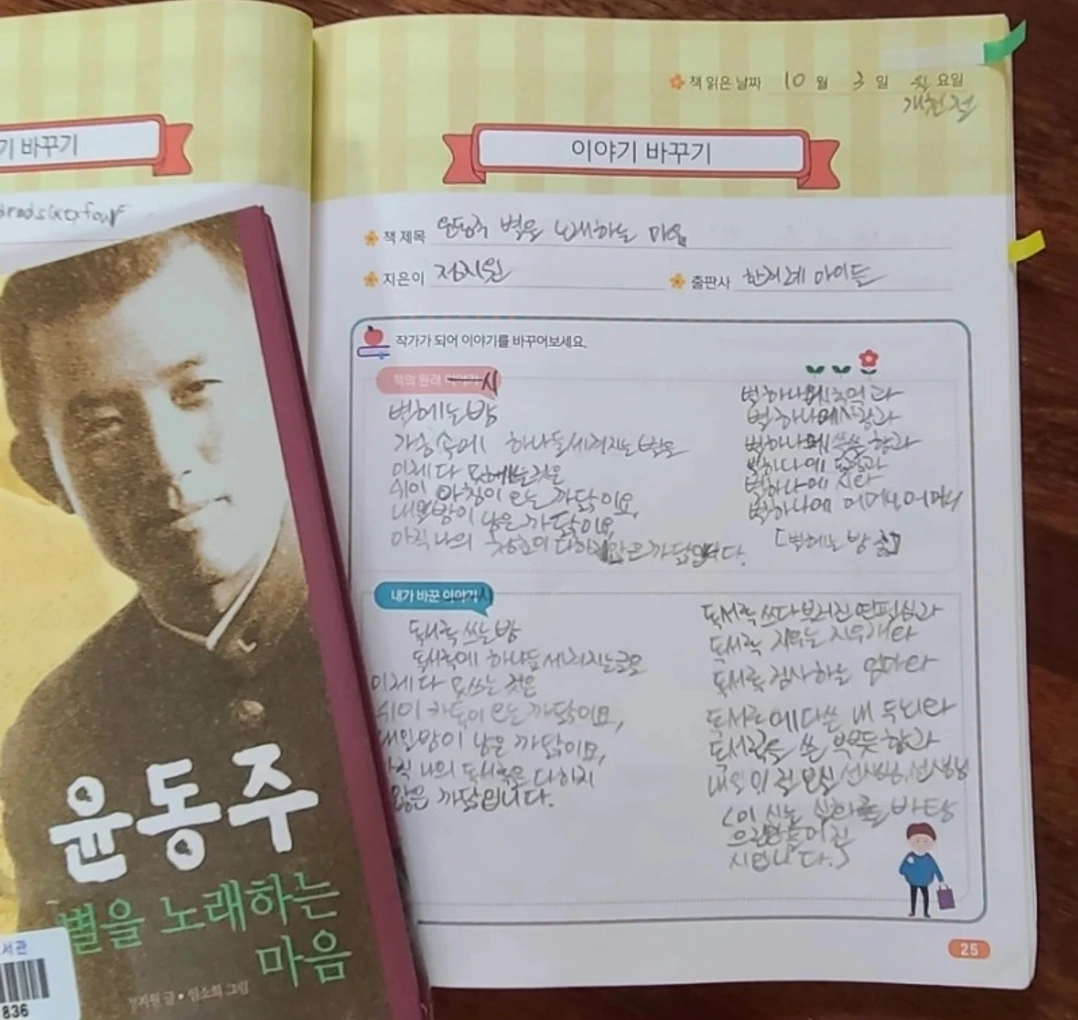 기 바꾸기
책 읽은 날짜 10 월 3 일 요일
개천절
이야기 바꾸기
책 제목 윤동주 별을 노래하는 마음
지은이 정지원
출판사 한겨레 아이들
작가가 되어 이야기를 바꾸어보세요.
책의 원래 이야기 시
별헤는 밤
가슴속에 하나둘 새겨지는 별을
이제 다 못헤는것은
쉬이 아침이 오는 까닭이요,
내일밤이 남은 까닭이요,
아직 나의 청춘이 다하지 않은 까닭입니다.
별하나에 추억과
별하나에 사랑과
별하나에 쓸쓸함과
별하나에 동경과
별하나에 시와
별하나에 어머니, 어머니
[별헤는 밤 중]
내가 바꾼 이야기 시
독서록 쓰는 밤
독서록에 하나둘 새겨지는 글을
이제 다 못쓰는 것은
쉬이 카톡이 오는 까닭이요,
내일밤이 남은 까닭이요,
아직 나의 독서록은 다하지
않은 까닭입니다.
독서록 쓰다 부러진 연필심과
독서록 지우는 지우개와
독서록 검사하는 엄마와
독서록에 다쓴 내 두뇌와
독서록을 쓴 뿌듯함과
내일 이걸 보실 선생님, 선생님
<이 시는 실화를 바탕
으로 만들어진
시입니다.>
25
윤동주
별을 노래하는
마음
지원 글 • 임소희 그림
서관
836